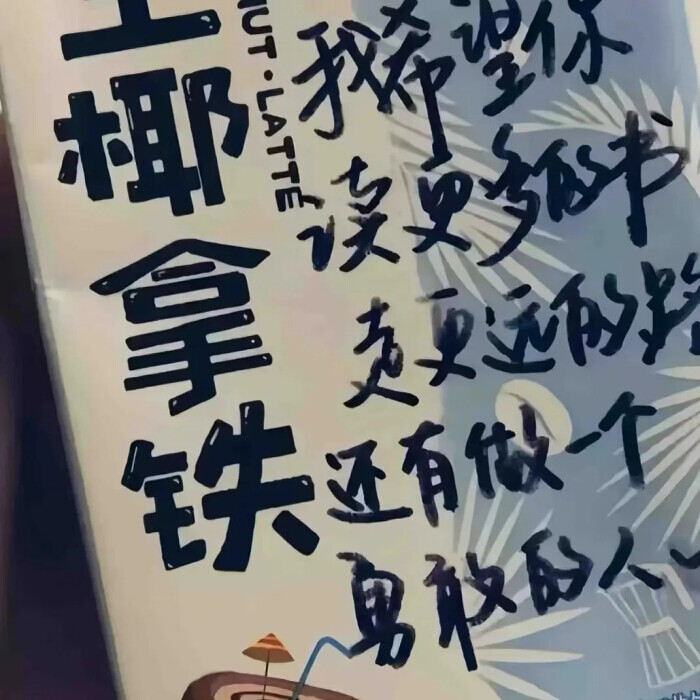 椰拿铁
NUT·LATTE
我希望你
读更多的书
走更远的路
还有做一个
勇敢的人~